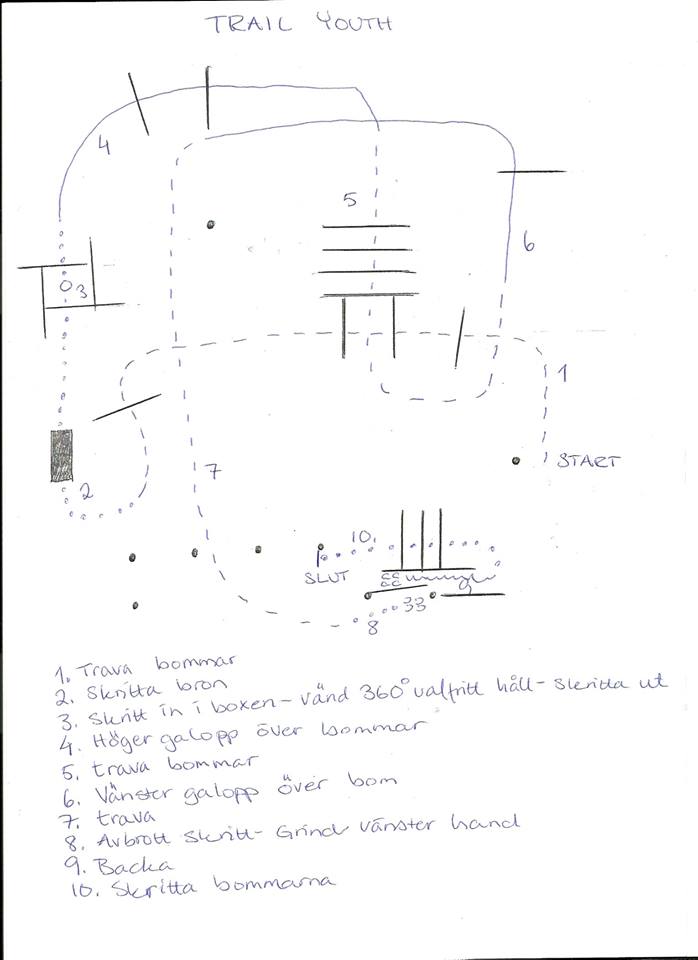 TRAIL YOUTH
4
5
6
3
1
START
2
7
10.
SLUT
33
8
9
1. Trava bommar
2. Skritta bron
3. Skritt in i boxen - vänd 360° valfritt håll - skritta ut
4. Höger galopp över bommar
5. trava bommar
6. Vänster galopp över bom
7. trava
8. Avbrott skritt - Grind vänster hand
9. Backa
10. Skritta bommarna